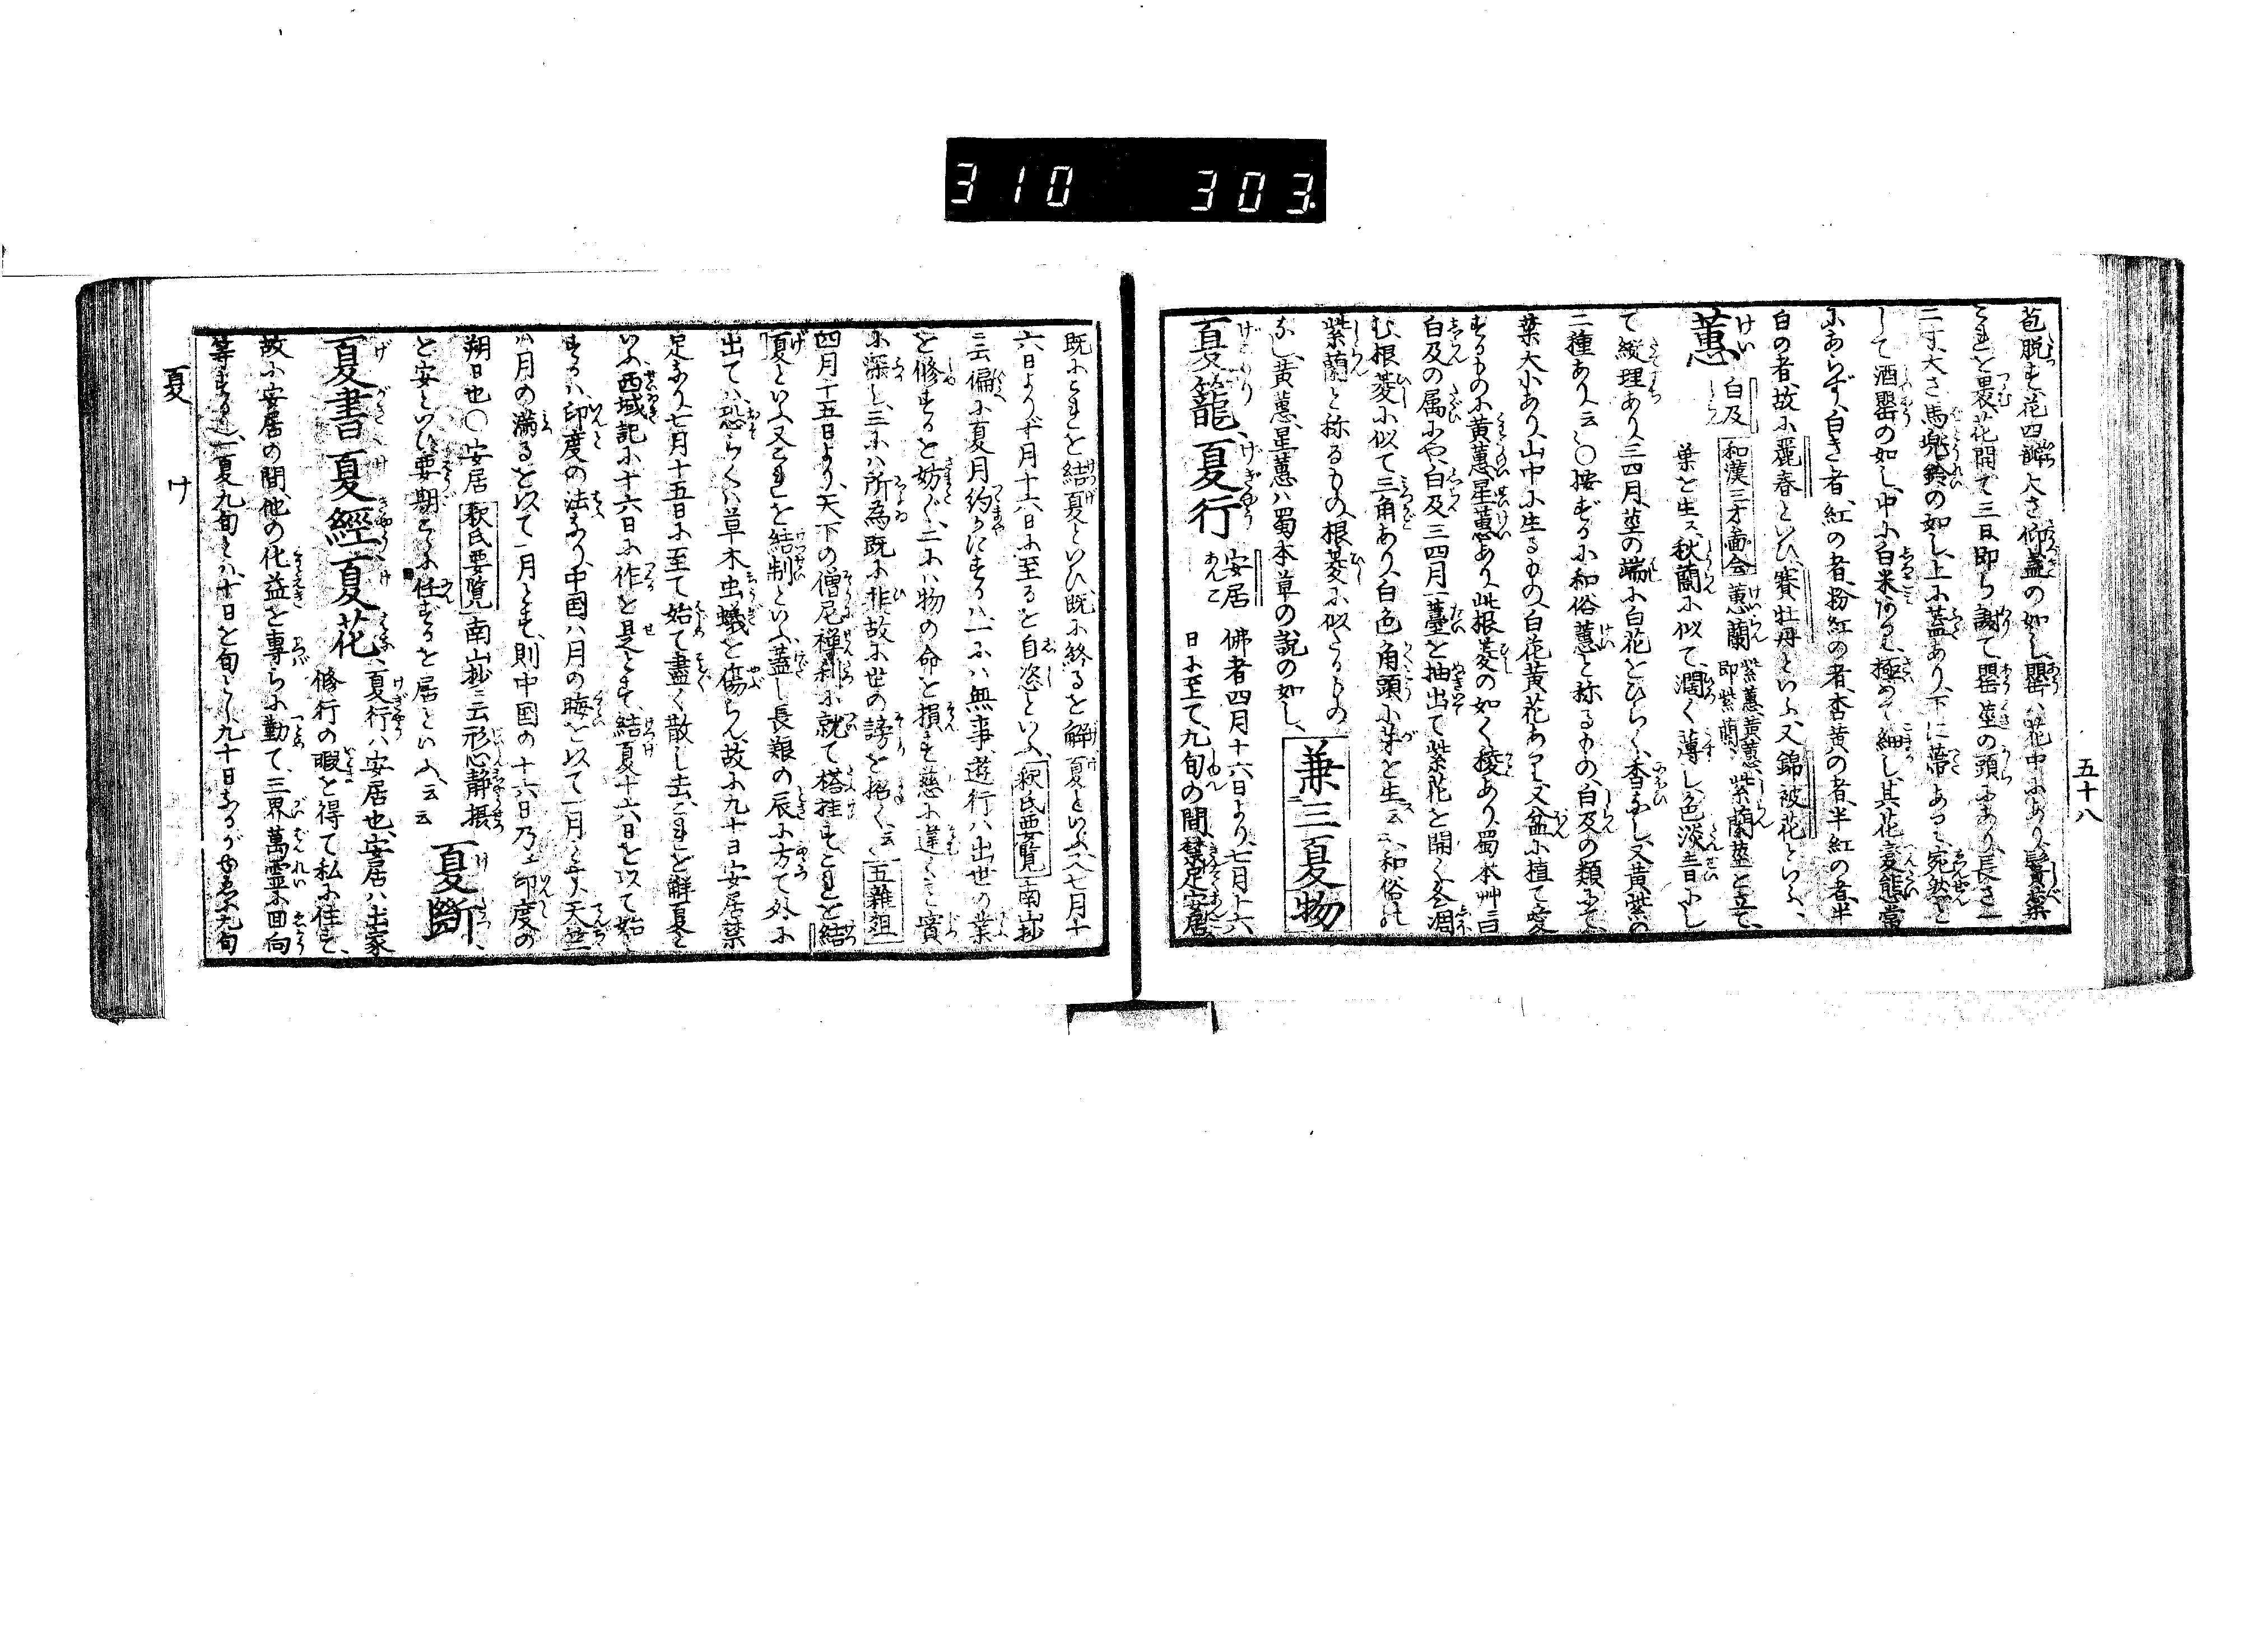 310 303
五十八
苞脱す、花四瓣、大さ仰盞の如し、罌ハ花中にあり、鬚蘂
これを裹、花開て三日、即ち謝て、罌莖の頭にあり、長さ一
二寸、大さ馬兜鈴の如し、上に蓋あり、下に蔕あり、宛然と
して酒罌の如し、中に白米あり、極めて細し、其花変態常
にあらず、白き者、紅の者、粉紅の者、杏黄の者、半紅の者、半
白の者、故に麗春といひ、賽牡丹といふ、又錦被花といふ、
蕙 白及 和漢三才圖会 蕙蘭 紫蕙黄蕙 即紫蘭、紫蘭、莖を立て、
葉を生ス、秋蘭に似て、濶く薄し、色淡青にし
て縦理あり、三四月、莖の端に白花をひらく、香なし、又黄紫の
二種あり云々○按ずるに和俗蕙と称るもの、白及の類にて、
葉大小あり、山中に生るもの、白花黄花あり、又盆に植て愛
するものに黄蕙星蕙あり、此根菱の如く稜あり、蜀本艸ニ曰
白及の属にや、白及三四月一薹を抽出て紫花を開く、冬凋
む、根菱に似て三角あり、白色、角頭に芽を生ス云々、和俗の
紫蘭と称るもの、根菱に似たるもの
なし、黄蕙、星蕙ハ蜀本草の説の如し、 兼三夏物
夏籠、夏行 安居 佛者四月十六日より、七月十六
日に至て、九旬の間、禁足安居
既にこれを結夏といひ、既に終るを解夏といふ、又七月十
六日より、八月十六日に至るを自恣といふ、釈氏要覧 南山抄
ニ云、偏に夏月約かにするハ、一にハ無事、遊行ハ出世の業
を修するを妨ぐ、二にハ物の命を損す、慈に違くこと實
に深し、三にハ所為既に非故に世の謗を招く云々 五雜俎
四月十五日より、天下の僧尼禅刹に就て搭挂す、これを結
夏といふ、又これを結制といふ、蓋し長養の辰に方て外に
出てハ恐らくハ草木虫蟻を傷らん、故に九十日安居禁
足なり、七月十五日に至て、始て盡く散し去、これを解夏と
いふ、西域記に十六日に作を是とす、結夏十六日を以て始と
するハ、印度の法なり、中国ハ月の晦を以て一月とす、天竺
ハ月の満るを以て一月とす、則中国の十六日乃ち印度の
朔日也○安居 釈氏要覧 南山抄ニ云、形心静攝
を安といひ、要期こゝに住するを居といふ、云云 夏斷、
夏書 夏經 夏花、夏行ハ安居也、安居ハ出家
修行の暇を得て私に住ど、
故に安居の間、他の化益を専らに勤て、三界萬霊に回向
等する也、一夏九旬とハ、十日を旬とし、九十日なるがゆゑに九旬
夏 ケ